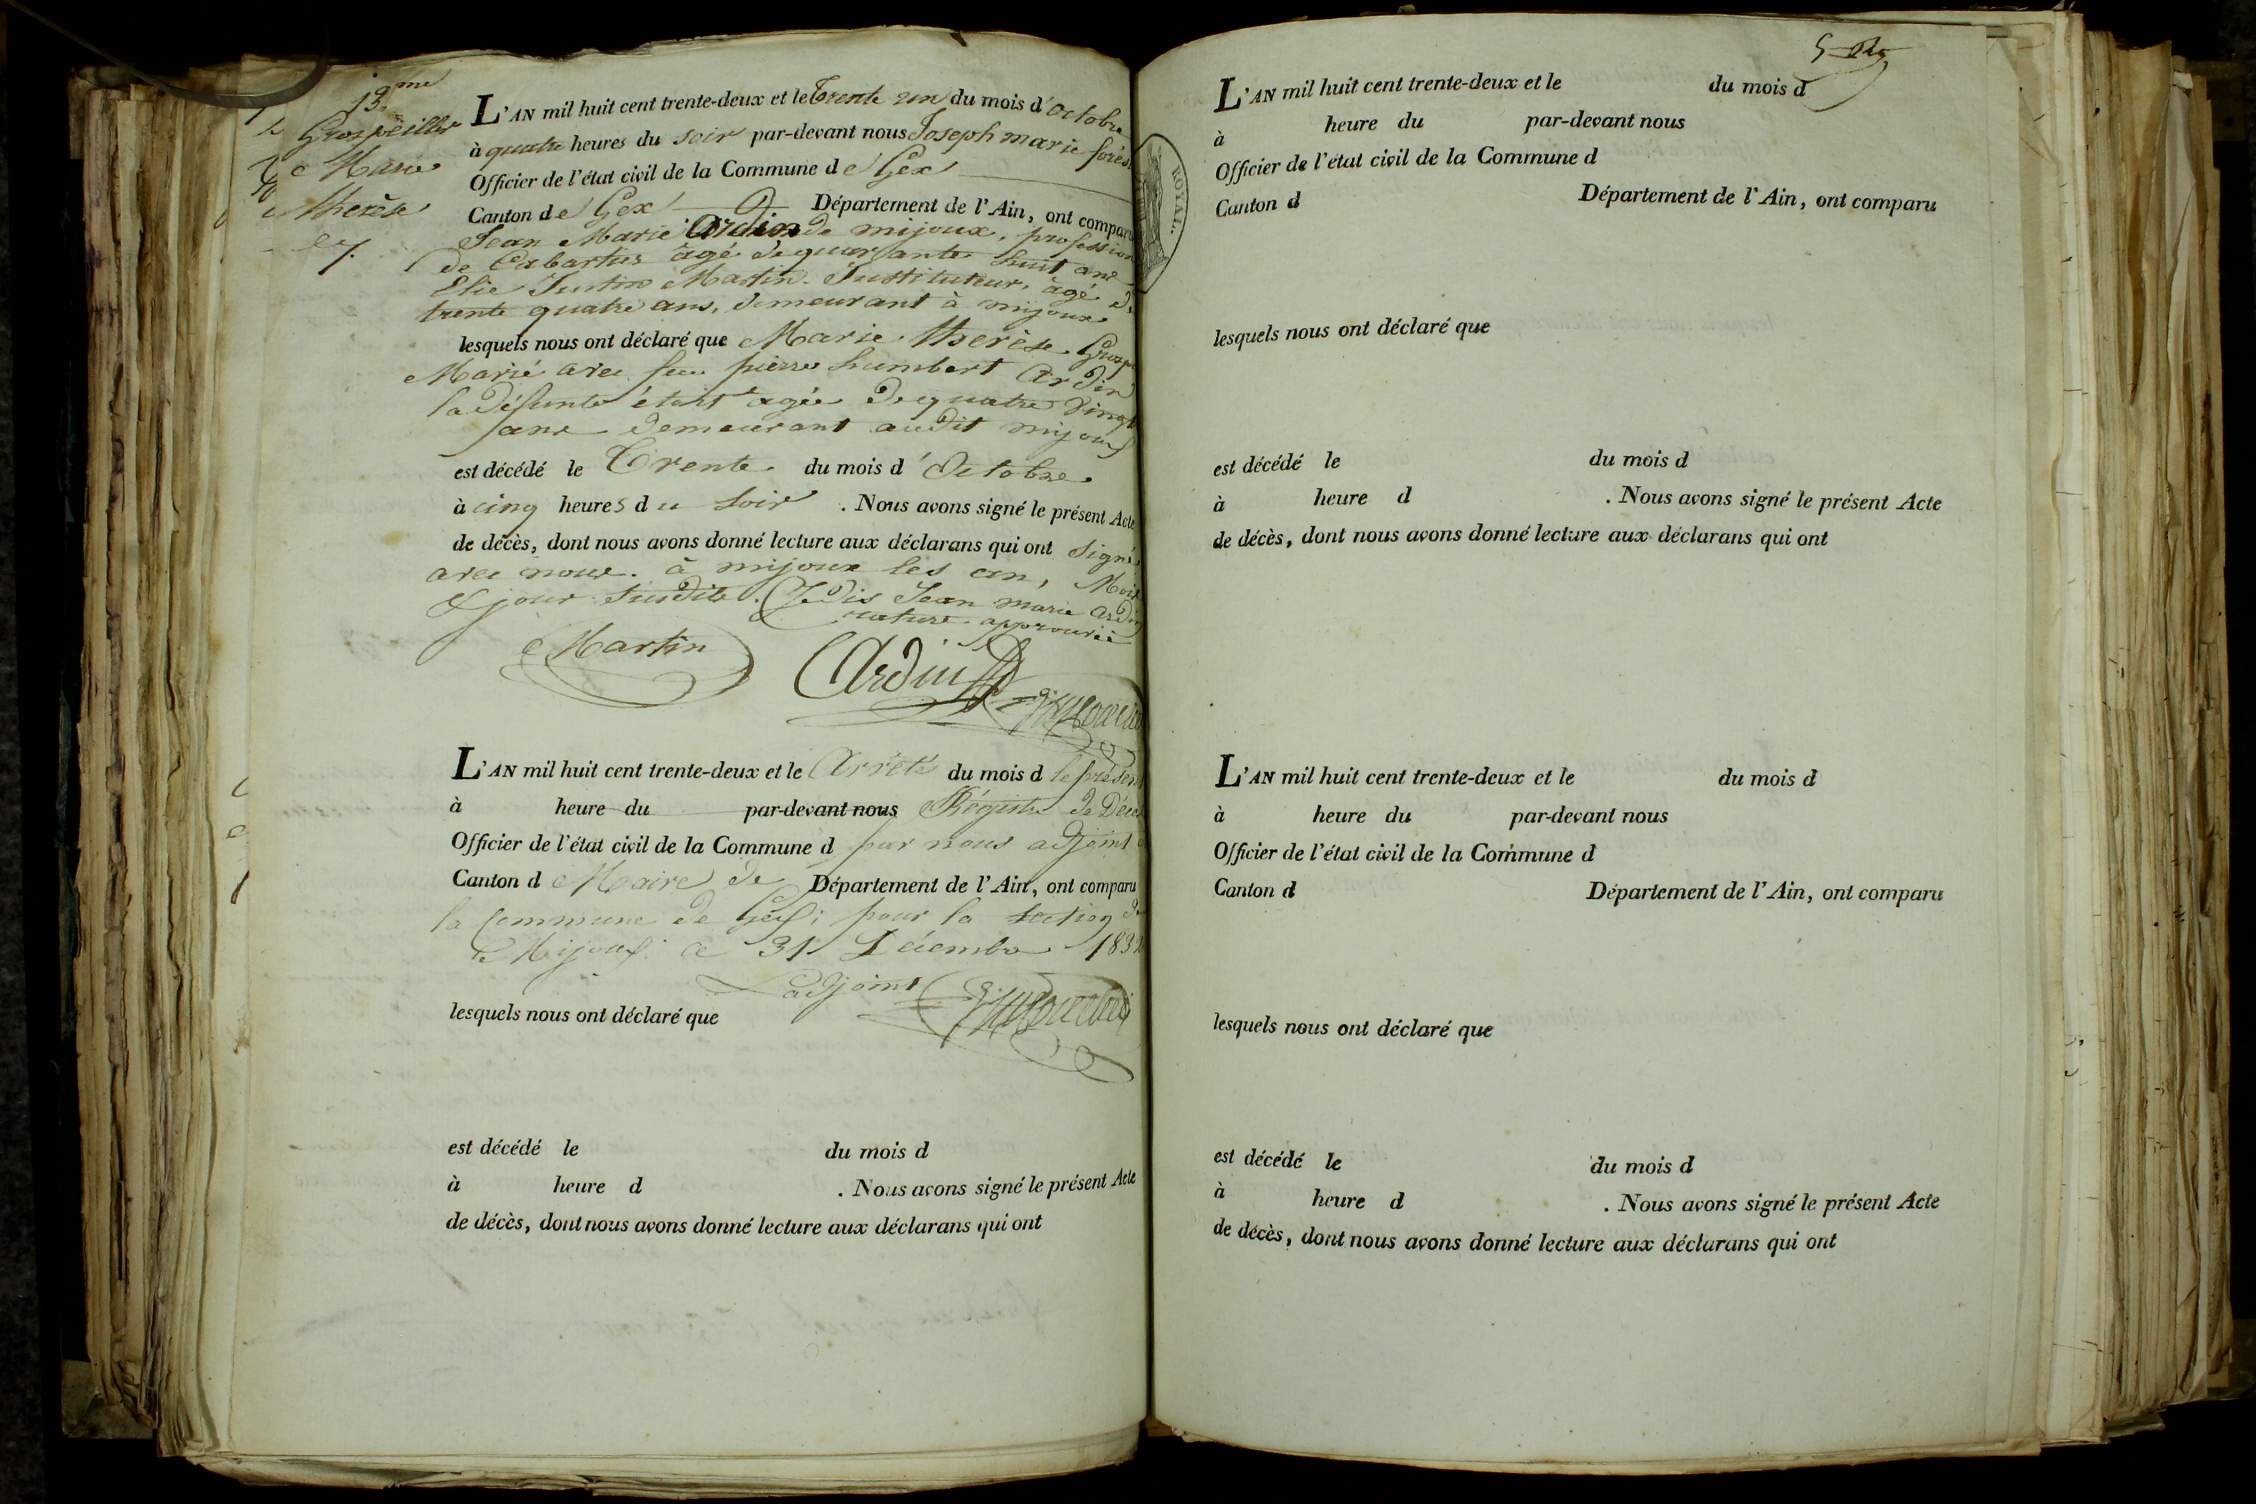 13.me
Grospeiller
Marie
therèse
L'AN mil huit cent trente-deux et le Trente un du mois d'octobre
à quatre heures du soir par-devant nous Joseph marie
Officier de l'état civil de la Commune de Gex
Canton de Gex Département de l'Ain, ont comparu
Jean Marie Ardin de mijoux, profession
de Cabartier âgé de quarsante huit ans
Elie Justin Martin Instituteur, âgé de
trente quatre ans, demeurant à mijoux
lesquels nous ont déclaré que Marie therèse
Marié avec feu pierre humbert Ardin
la défunte étoit agée de quatre vingt
ans demeurant audit mijoux
est décédé le Trente du mois d'Octobre
à cinq heures du soir . Nous avons signé le présent Acte
de décès, dont nous avons donné lecture aux déclarans qui ont signé
avec nous. à mijoux les an, Mois
& jour susdits. Jedis Jean marie Ardin
rature approuvée
Martin
Ardin
L'AN mil huit cent trente-deux et le Arrêté du mois d le présent
à heure du par-devant nous Régistre de Décès
Officier de l'état civil de la Commune d par nous adjoint
Canton d Maire de Département de l'Ain, ont comparu
la Commune de Gex; pour la section de
Mijoux ce 31 Décembre 1832
adjoint
lesquels nous ont déclaré que
est décédé le du mois d
à heure d . Nous avons signé le présent Acte
de décès, dont nous avons donné lecture aux déclarans qui ont
ROYAL.
L'AN mil huit cent trente-deux et le du mois d
à heure du par-devant nous
Officier de l'état civil de la Commune d
Canton d Département de l'Ain, ont comparu
lesquels nous ont déclaré que
est décédé le du mois d
à heure d . Nous avons signé le présent Acte
de décès, dont nous avons donné lecture aux déclarans qui ont
L'AN mil huit cent trente-deux et le du mois d
à heure du par-devant nous
Officier de l'état civil de la Commune d
Canton d Département de l'Ain, ont comparu
lesquels nous ont déclaré que
est décédé le du mois d
à heure d . Nous avons signé le présent Acte
de décès, dont nous avons donné lecture aux déclarans qui ont